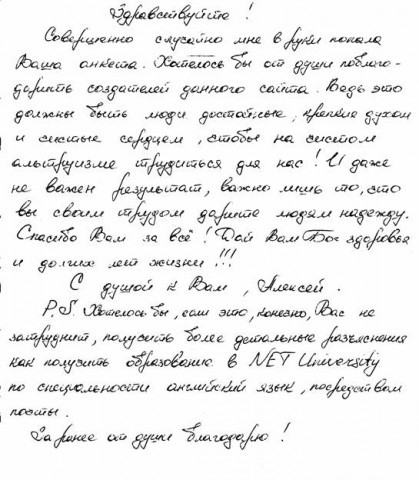 Здравствуйте !
Совершенно случайно мне в руки попала
Ваша анкета. Хотелось бы от души поблаго-
дарить создателей данного сайта. Ведь это
должны быть люди достойные, крепкие духом
и чистые сердцем, чтобы на чистом
альтруизме трудиться для нас ! И даже
не важен результат, важно лишь то, что
вы своим трудом дарите людям надежду.
Спасибо Вам за всё ! Дай Вам Бог здоровья
и долгих лет жизни !!!
С душой к Вам, Алексей.
P.S. Хотелось бы, если это, конечно, Вас не
затруднит, получить более детальные разъяснения
как получить образование в NET University
по специальности английский язык, посредством
почты.
Заранее от души благодарю !